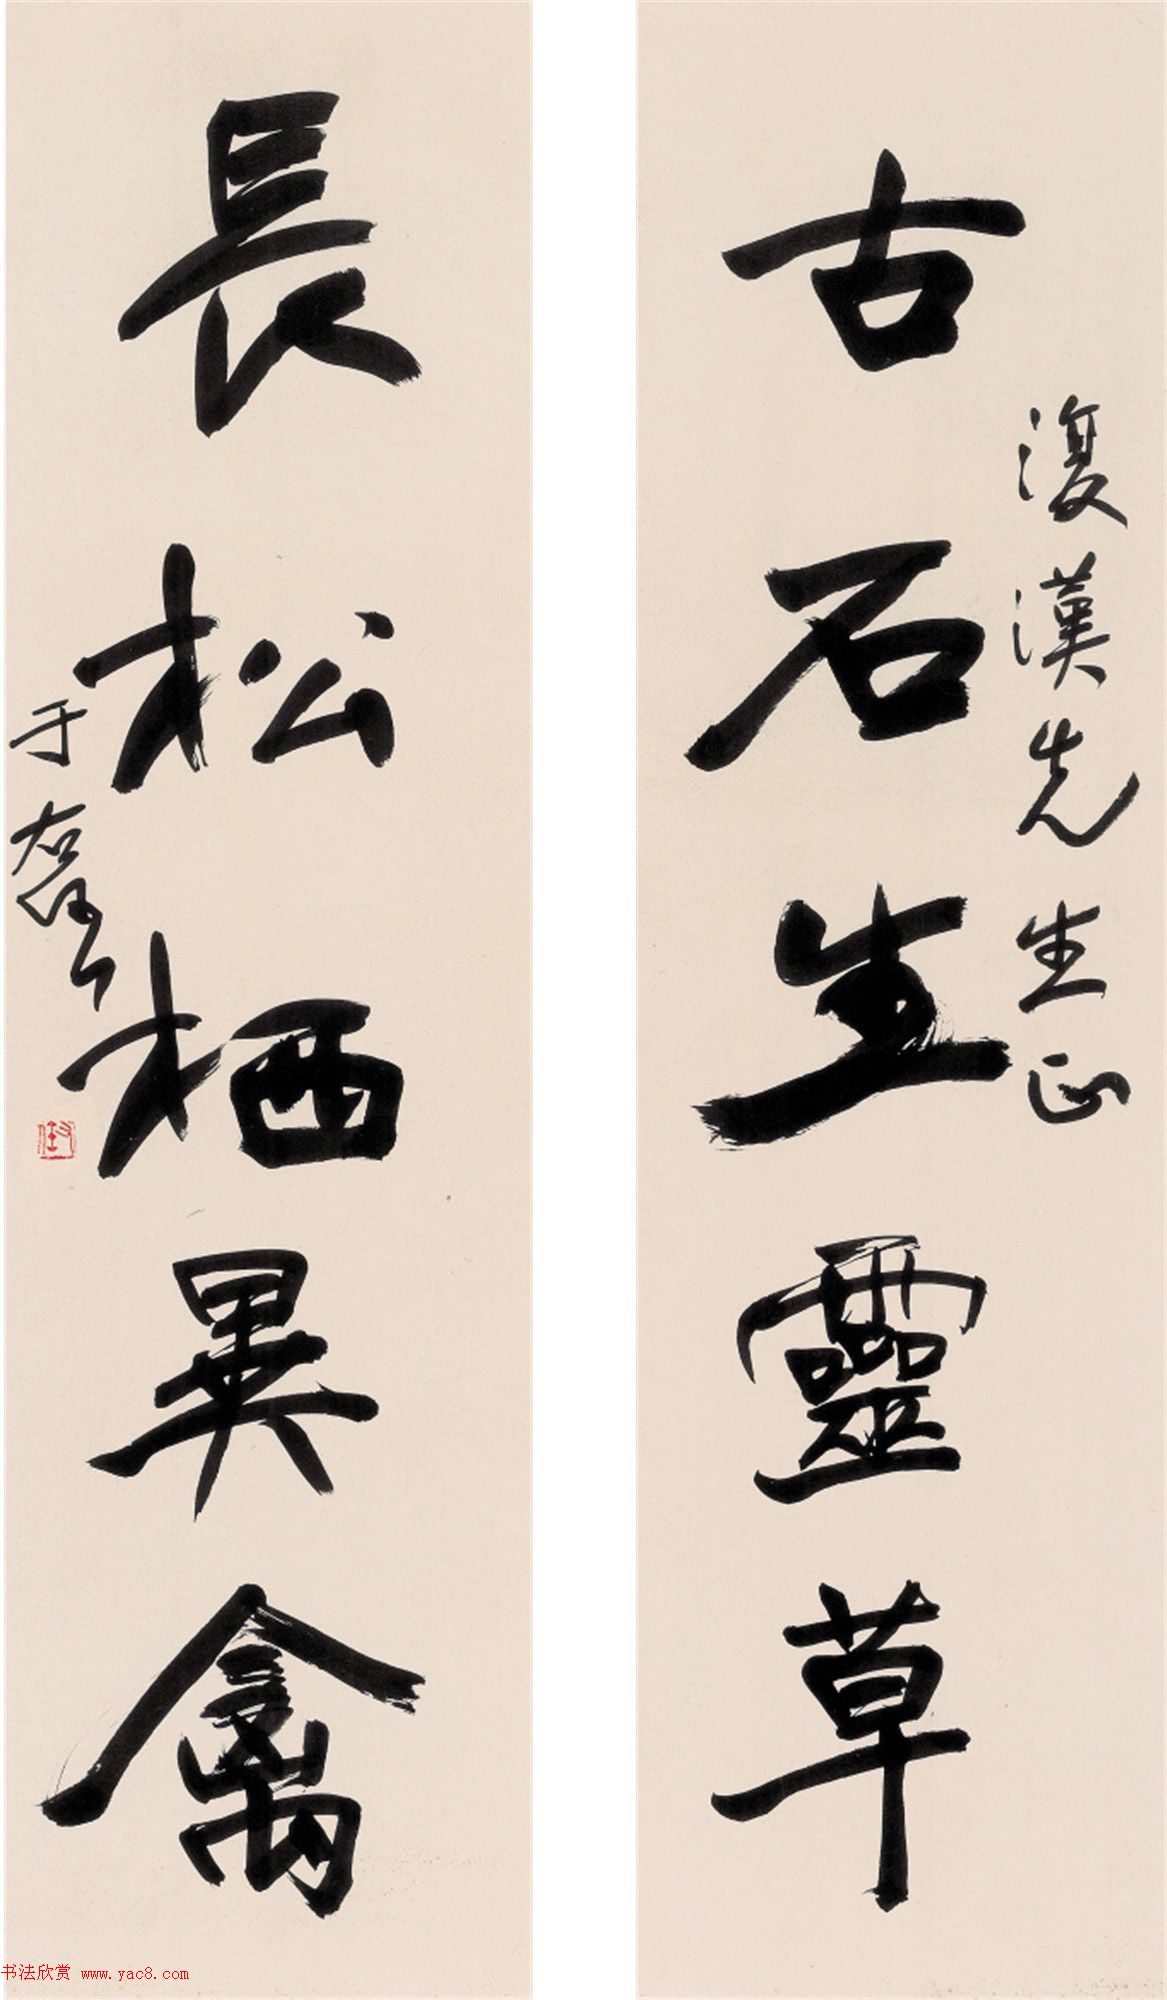 古石生靈草
復漢先生正
長松栖異禽
于右任
书法欣赏 www.yac8.com